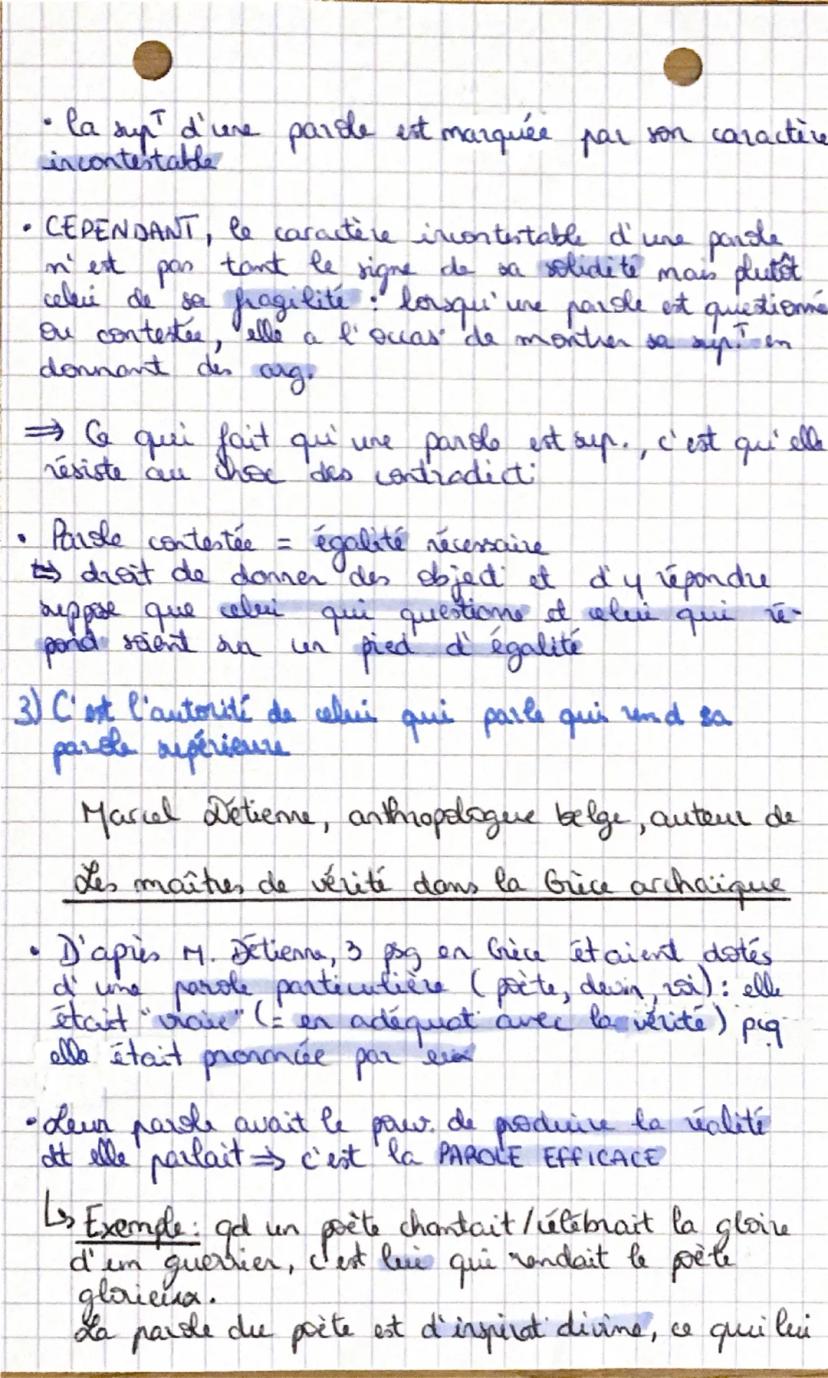 • la supT d'une parole est marquée par son caractère
incontestable
• CEPENDANT, le caractère incontestable d'une parole
n'est pas tant le signe de sa solidité mais plutôt
celui de sa fragilité : lorsqu'une parole est questionné
ou contestée, elle a l'occas° de montrer sa supT en
donnant des arg.
⇒ Ce qui fait qu'une parole est sup., c'est qu'elle
résiste au choc des contradict°
• Parole contestée = égalité nécessaire
↳ droit de donner des object° et d'y répondre
suppose que celui qui questionne et celui qui ré-
pond soient sur un pied d'égalité
3) C'est l'autorité de celui qui parle qui rend sa
parole supérieure
Marcel Détienne, anthropologue belge, auteur de
Les maîtres de vérité dans la Grèce archaïque
• D'après M. Détienne, 3 psg en Grèce étaient dotés
d'une parole particulière (poète, devin, roi) : elle
était "vraie" (= en adéquat° avec la vérité) pcq
elle était prononcée par eux
• Leur parole avait le pouv. de produire la réalité
dt elle parlait ⇒ c'est la PAROLE EFFICACE
↳ Exemple : qd un poète chantait/célébrait la gloire
d'un guerrier, c'est lui qui rendait le poète
glorieux.
La parole du poète est d'inspirat° divine, ce qui lui